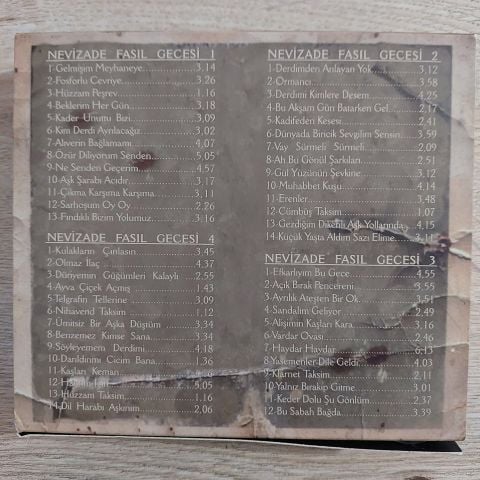 NEVİZADE FASIL GECESİ 1
1-Gelmişim Meyhaneye 3.14
2-Fosforlu Cevriye 3.26
3-Hüzzam Peşrev 1.16
4-Beklerim Her Gün 3.18
5-Kader Unuttu Bizi 3,09
6-Kim Derdi Ayrılacağız 3,02
7-Alıverin Bağlamamı 4,07
8-Özür Diliyorum Senden 5,05
9-Ne Senden Geçerim 4,57
10-Aşk Şarabı Acıdır 3.17
11-Çıkma Karşıma Karşıma 3,11
12-Sarhoşum Oy Oy 2,26
13-Fındıklı Bizim Yolumuz 3,16
NEVİZADE FASIL GECESİ 4
1-Kulakların Çınlasın 3,45
2-Olmaz İlaç 4,37
3-Dünyemin Güğümleri Kalaylı 2,55
4-Ayva Çiçek Açmış 1,43
5-Telgrafın Tellerine 3,09
6-Nihavend Taksim 1,12
7-Ümitsiz Bir Aşka Düştüm 3,34
8-Benzemez Kimse Sana 3,34
9-Söyleyemem Derdimi 4,18
10-Darıldınmı Cicim Bana 1,36
11-Kaşları Keman
12- 5,05
13-Hüzzam Taksim 1,16
14-Dil Harabı Aşkınım 2,06
NEVİZADE FASIL GECESİ 2
1-Derdimden Anlayan Yok 3,12
2-Ormancı 3,58
3-Derdimi Kimlere Desem 4,25
4-Bu Akşam Gün Batarken Gel 2,17
5-Kadifeden Kesesi 2,41
6-Dünyada Biricik Sevgilim Sensin 3,59
7-Vay Sürmeli Sürmeli 2,09
8-Ah Bu Gönül Şarkıları 2,51
9-Gül Yüzünün Şevkine 3,12
10-Muhabbet Kuşu 4,14
11-Erenler 3,48
12-Cümbüş Taksim 1,07
13-Gezdiğim Dikenli Aşk Yollarında 4,15
14-Küçük Yaşta Aldım Sazı Elime 3,11
NEVİZADE FASIL GECESİ 3
1-Efkarlıyım Bu Gece 4,55
2-Açık Bırak Pencereni 3,55
3-Ayrılık Ateşten Bir Ok 3,51
4-Sandalım Geliyor 2,49
5-Alişimin Kaşları Kara 3,16
6-Vardar Ovası 2,46
7-Haydar Haydar 6,13
8-Yasemenler Dile Geldi 4,03
9-Klarnet Taksim 2,11
10-Yalnız Bırakıp Gitme 3,01
11-Keder Dolu Şu Gönlüm 2,37
12-Bu Sabah Bağda 3,39